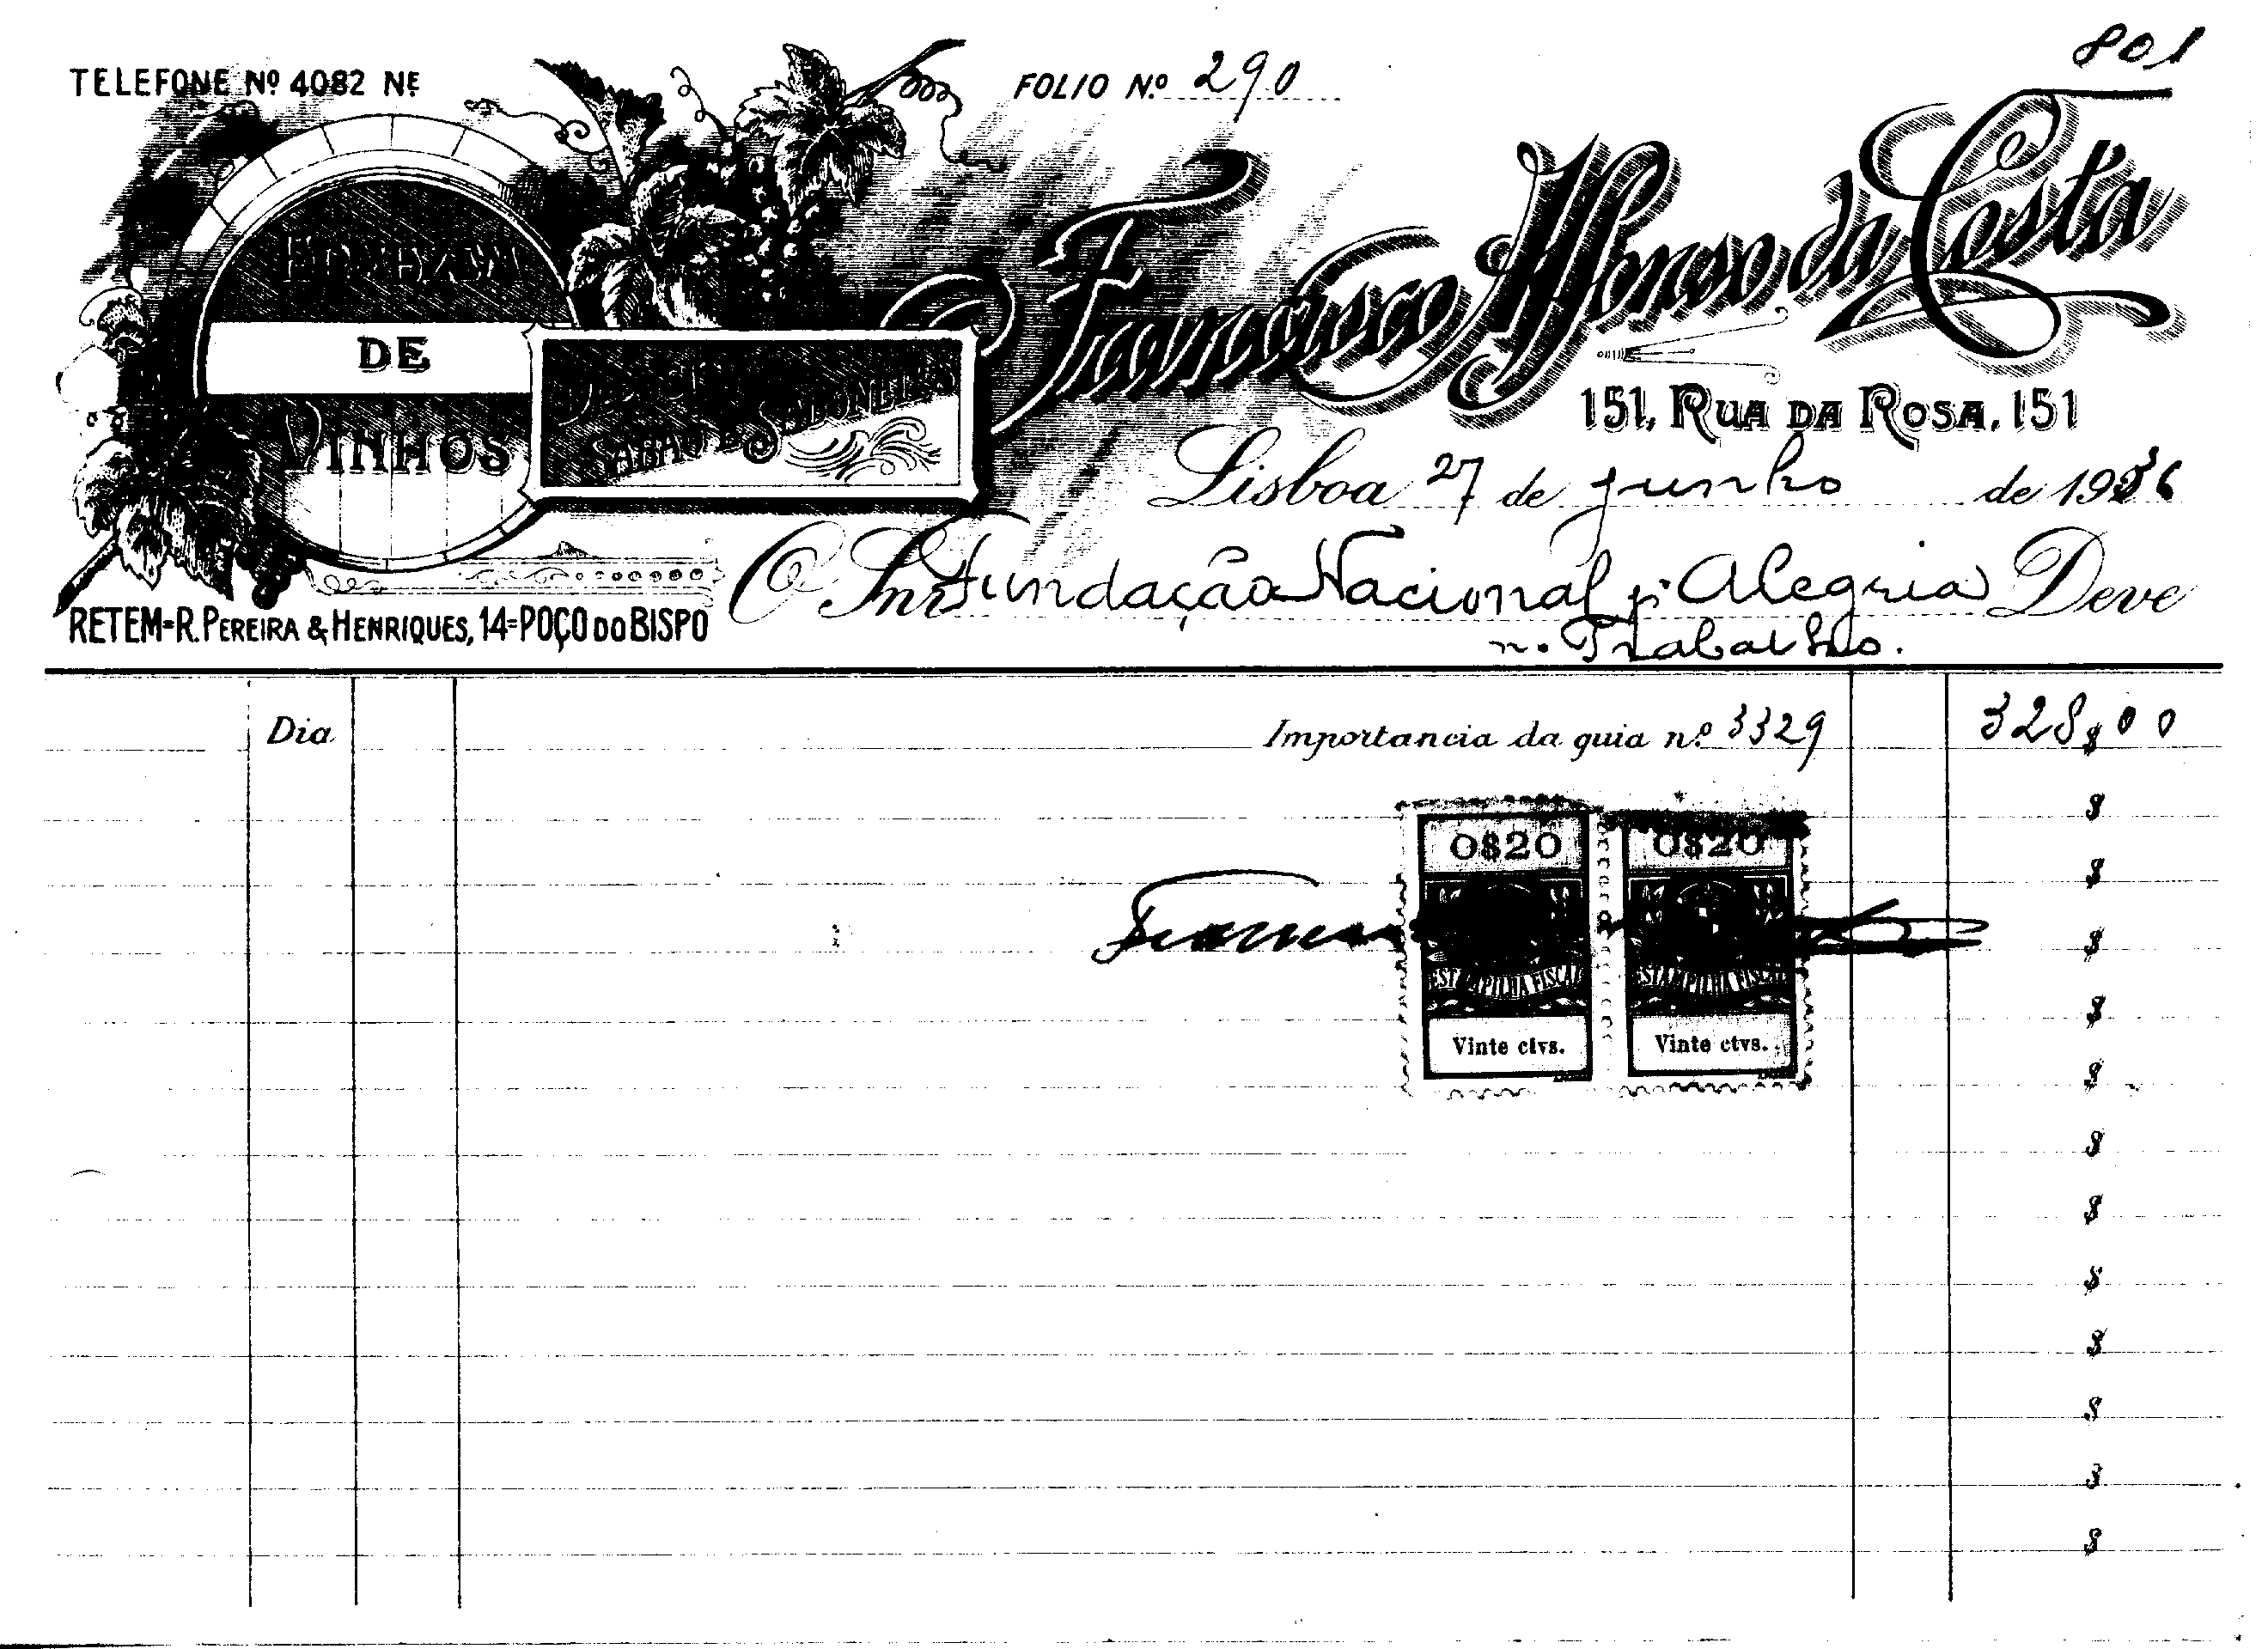 801
TELEFONE Nº 4082 NE
FOLIO N.º 290
Francisco Affonso da Costa
DE
VINHOS
SABÃO E SABONETES
151, RUA DA ROSA, 151
Lisboa 27 de junho de 1936
O Snr. Fundação Nacional p. Alegria Deve
n. Trabalho.
RETEM=R. PEREIRA & HENRIQUES, 14=POÇO DO BISPO
Dia Importancia da guia n.º 3329 328$00
$
0$20 0$20
$
$
ESTAMPILHA FISCAL ESTAMPILHA FISCAL
$
Vinte ctvs. Vinte ctvs.
$
$
$
$
$
$
$
$